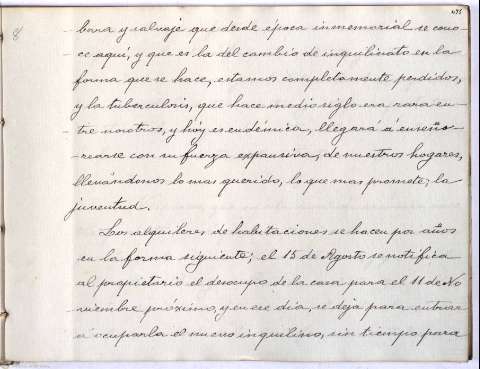 8
bara y salvaje que desde época inmemorial se cono-
ce aquí, y que es la del cambio de inquilinato en la
forma que se hace, estamos completamente perdidos,
y la tuberculosis, que hace medio siglo era rara en-
tre nosotros, y hoy es endémica, llegará á enseño-
rearse con su fuerza expansiva, de nuestros hogares,
llevándonos lo mas querido, lo que mas promete; la
juventud.
Los alquileres de habitaciones se hacen por años
en la forma siguiente; el 15 de Agosto se notifica
al propietario el desocupo de la casa para el 11 de No
viembre próximo, y en ese dia, se deja para entrar
á ocuparla el nuevo inquilino, sin tiempo para